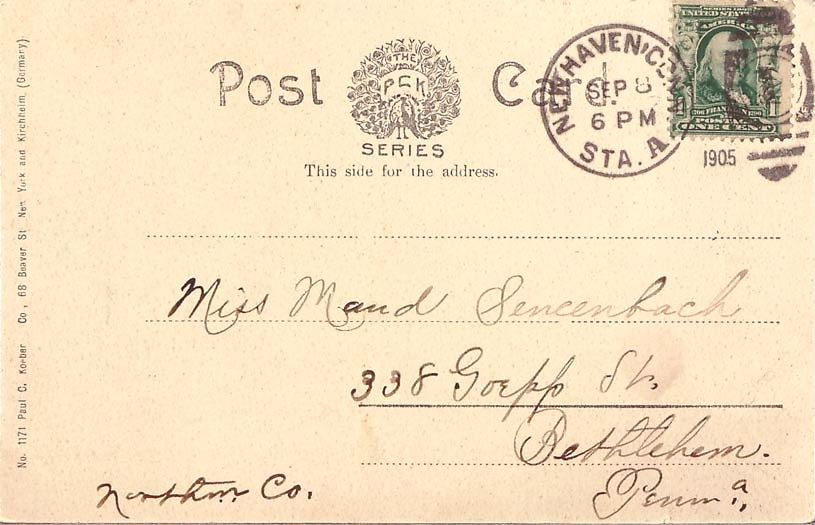 Post Card
THE
PCK
SERIES
This side for the address.
NEW HAVEN, CONN.
SEP 8
6 PM
STA. A.
1905
SERIES 1902
UNITED STATES OF AMERICA
FRANKLIN
POSTAGE
ONE CENT
Miss Maud Sencenbach
338 Goepp St.
Bethlehem.
Northm. Co.
Penna.,
No. 1171 Paul C. Koeber Co., 68 Beaver St. New York and Kirchheim, (Germany).